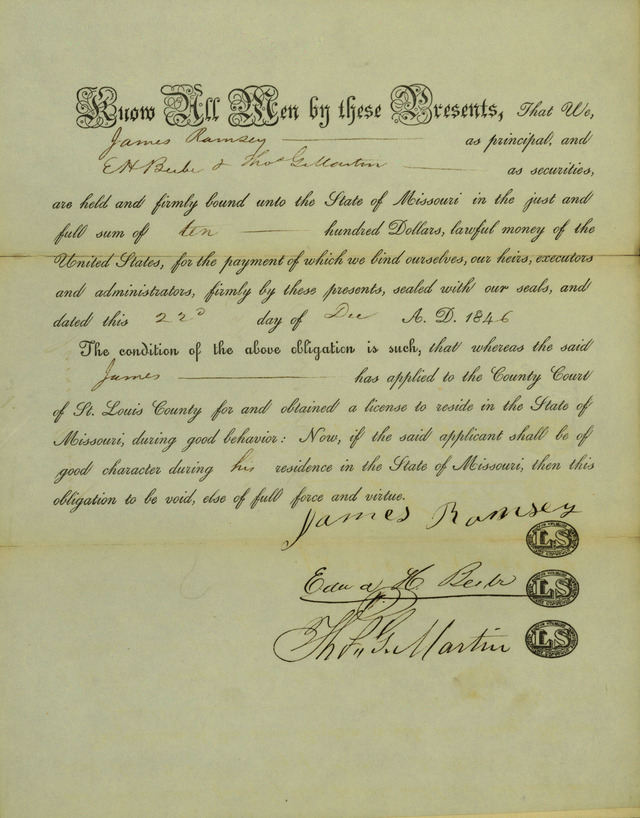 Know All Men by these Presents, That We,
James Ramsey as principal, and
E H Beebe & Thos G Martin as securities,
are held and firmly bound unto the State of Missouri in the just and
full sum of ten hundred Dollars, lawful money of the
United States, for the payment of which we bind ourselves, our heirs, executors
and administrators, firmly by these presents, sealed with our seals, and
dated this 22d day of Dec A. D. 1846
The condition of the above obligation is such, that whereas the said
James has applied to the County Court
of St. Louis County for and obtained a license to reside in the State of
Missouri, during good behavior: Now, if the said applicant shall be of
good character during his residence in the State of Missouri, then this
obligation to be void, else of full force and virtue.
James Ramsey
LS
Edwd H Beebe LS
Thos G. Martin LS